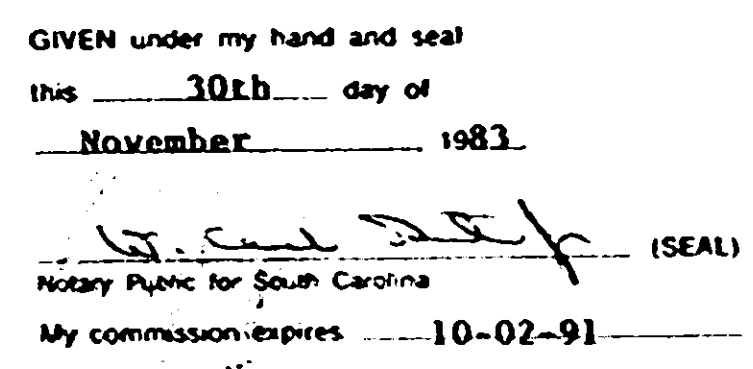 GIVEN under my hand and seal
this 30th day of
November 1983
W. (SEAL)
Notary Public for South Carolina
My commission expires 10-02-91